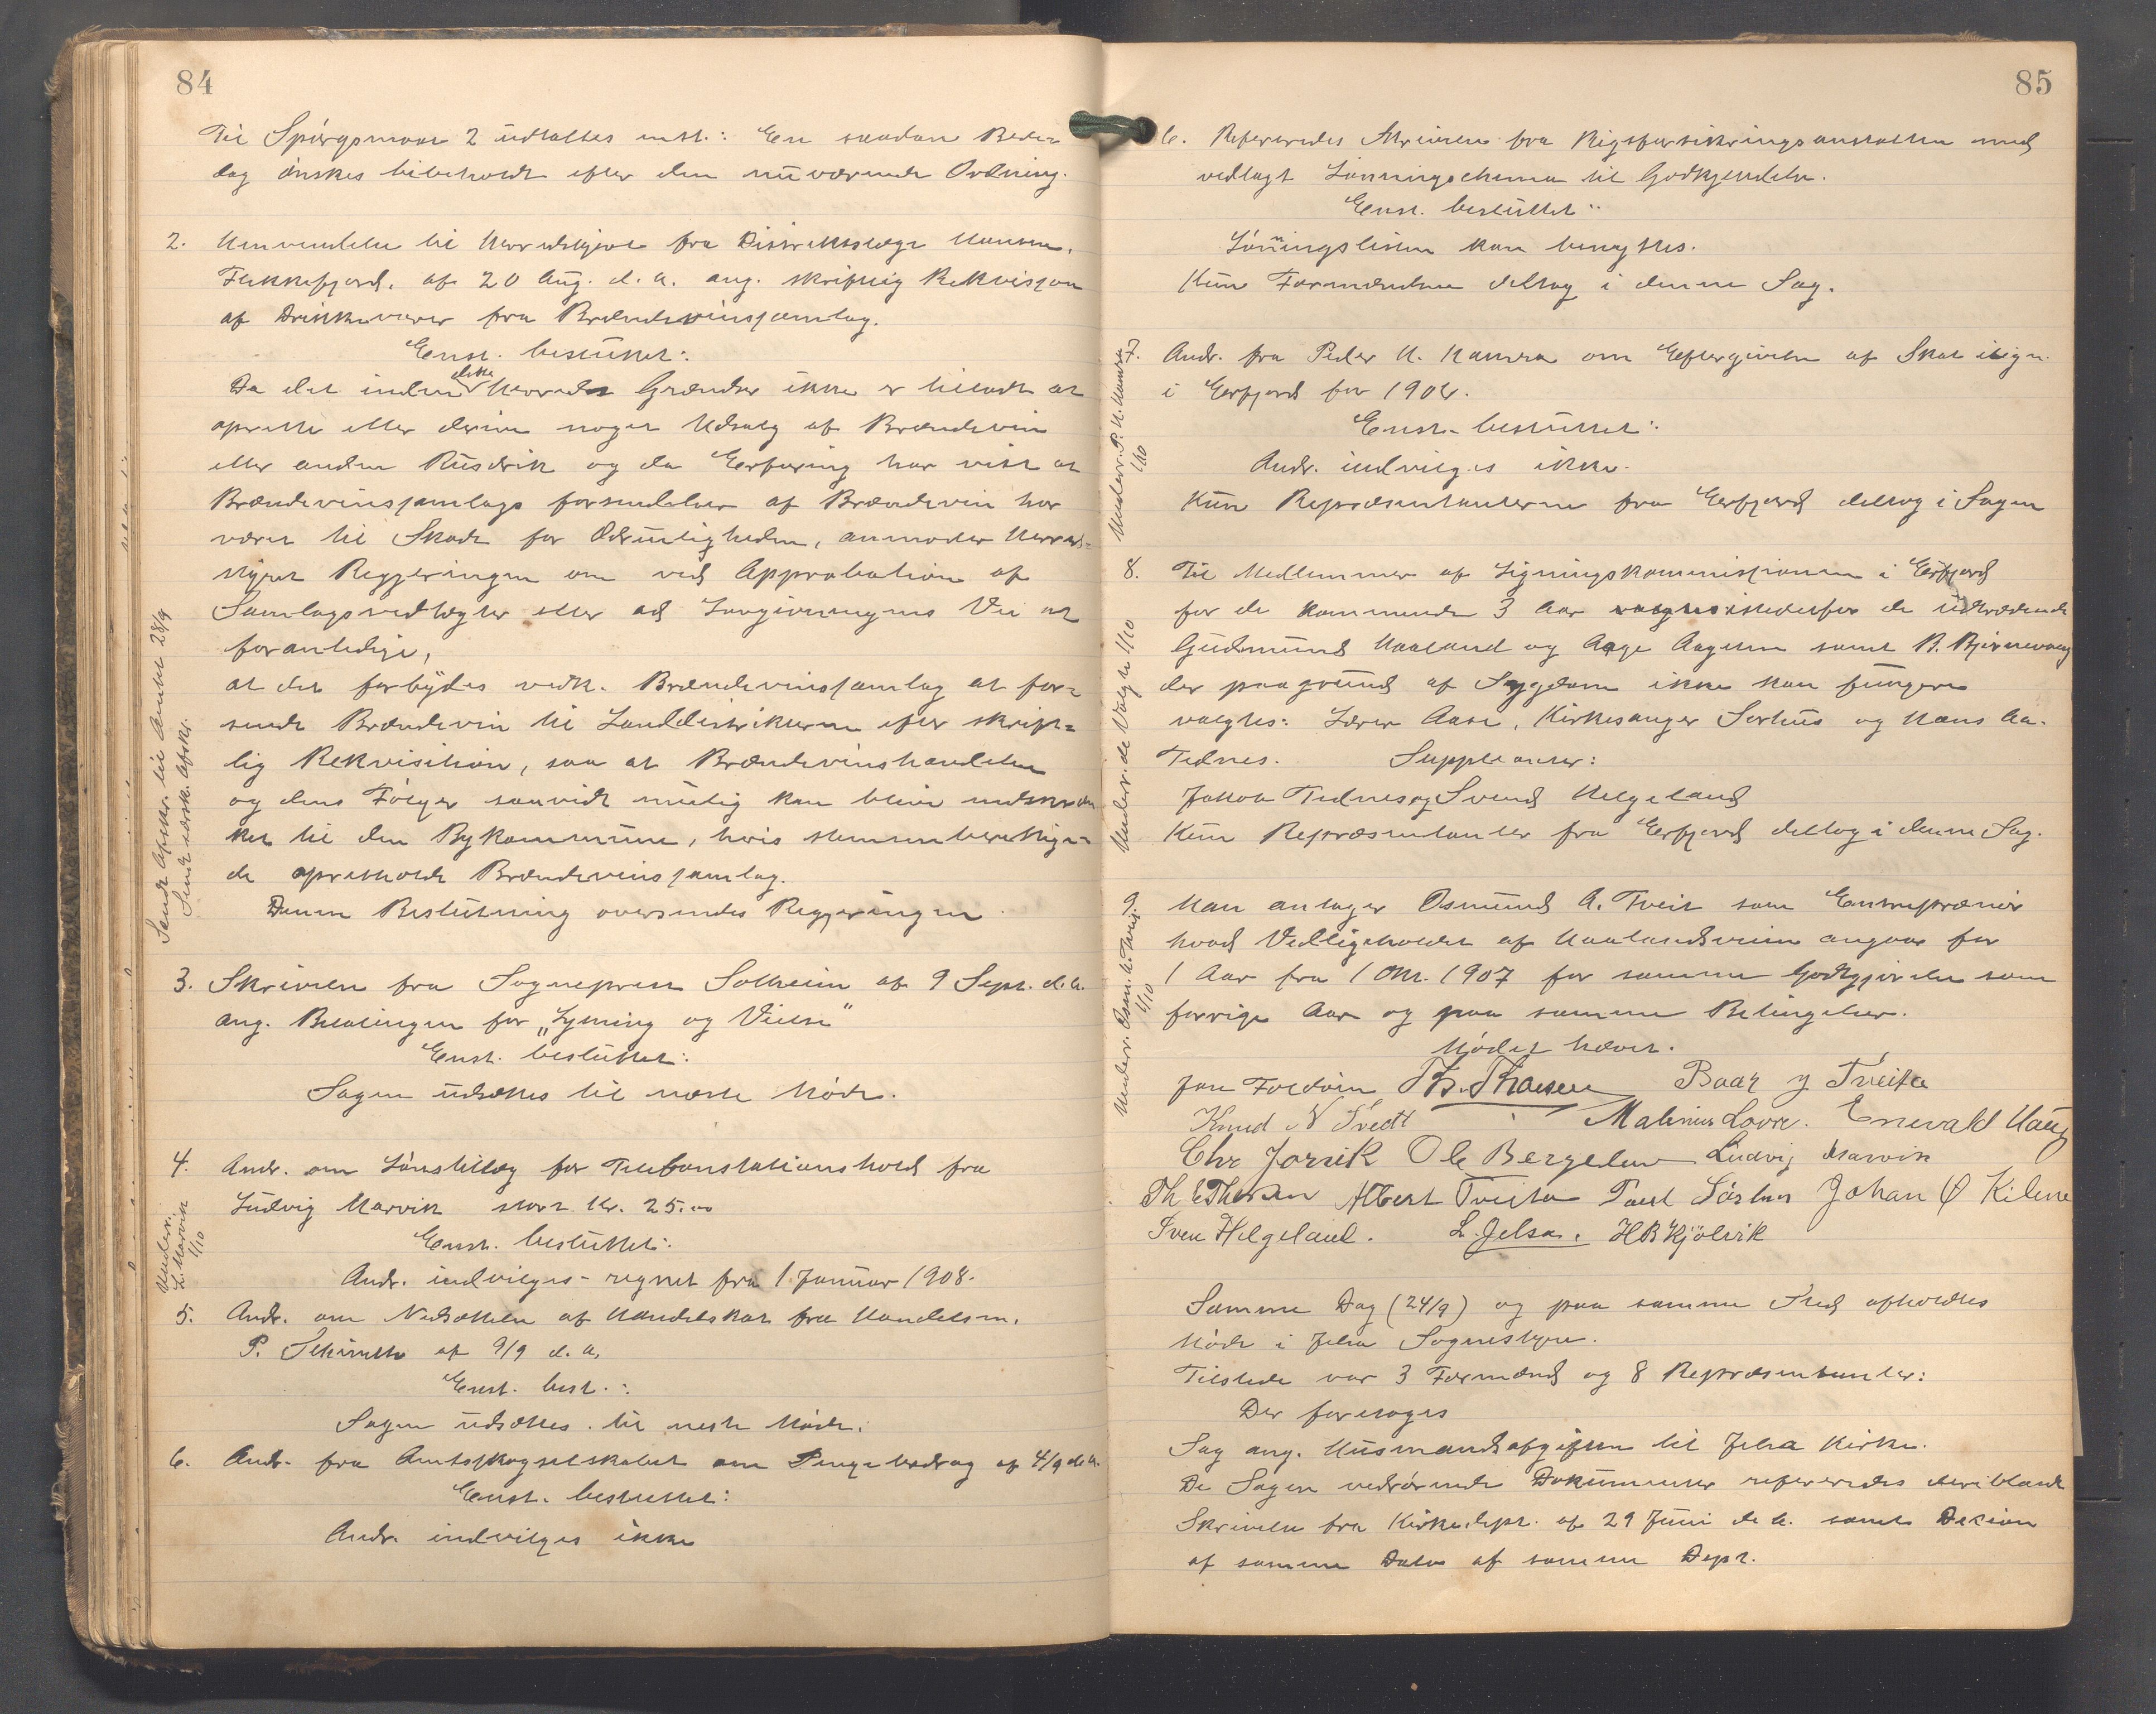 84
Til Spörgsmaal 2 udtaltes enst.: En saadan Bede-
dag önskes bibeholdt efter den nuværende Ordning.
2. Henvendelse til Herredstyret fra Distriktslæge Hansen,
Flekkefjord, af 20 Aug. d. a. ang. skriftlig Rekvisjon
af Drikkevarer fra Brændevinssamlag.
Enst. besluttet:
Da det inden dette Herreds Grændser ikke er tilladt at
oprette eller drive noget Udsalg af Brændevin
eller anden Rusdrik og da Erfaring har vist at
Brændevinssamlags forsendelser af Brændevin har
været til Skade for Ædrueligheden, anmoder Herreds-
styret Regjeringen om ved Approbation af
Samlagsvedtægter eller ad Lovgivningens Vei at
foranledige,
at det forbydes vedk. Brændevinssamlag at for-
sende Brændevin til Landdistrikterne efter skrift-
lig Rekvisition, saa at Brændevinshandelen
og dens Fölger saavidt mulig kan blive indskræn
ket til den Bykommune, hvis stemmeberettige-
de opretholdt Brændevinssamlag.
Denne Beslutning oversendes Regjeringen.
Sendt Afskr. til Amtet 28/9
Sendt særsk. Afskr.
3. Skrivelse fra Sogneprest Solheim af 9 Sept. d. a.
ang. Betalingen for „Lysning og Vielse"
Enst. besluttet:
Sagen udsættes til næste Möde.
4. Andr. om Lönstillæg for Telefonstationshold fra
Ludvig Marvik stort Kr. 25.00
Enst. besluttet:
Andr. indvilges - regnet fra 1 Januar 1908.
Underr.
L. Marvik
1/10
5. Andr. om Nedsættelse af Handelskat fra Handelsm.
P. af 9/9 d. a.
Enst. besl.:
Sagen udsættes til neste Möde.
6. Andr. fra Amtsskogselskabet om Pengebidrag af 4/9 d. a.
Enst. besluttet:
Andr. indvilges ikke
85
6. Refereredes Skrivelse fra Rigsforsikringsanstalten med
vedlagt Lönningschema til Godkjendelse.
Enst. besluttet:
Lönningslisten kan benyttes.
Kun Formændene deltog i denne Sag.
7. Andr. fra Peder H. Hamra om Eftergivelse af Skat ilign.
i Erfjord for 1906.
Enst. besluttet:
Andr. indvilges ikke.
Kun Repræsentanterne fra Erfjord deltog i Sagen
Underr. P. H. Hamra
1/10
8. Til Medlemmer af Ligningskommissionen i Erfjord
for de kommende 3 Aar valgtes istedetfor de udtrædende
Gudmund Haaland og Aage Aagesen samt B. Bjernevaag
der paagrund af Sygdom ikke kan fungere
valgtes: Lærer Aase, Kirkesanger Sorhus og Hans Aa.
Tednes. Suppleanter:
Jakob Tednes og Svend Helgeland
Kun Repræsentanter fra Erfjord deltog i denne Sag.
Underr. de Valgte 1/10
9. Man antager Osmund A. Tveit som Entreprenör
hvad Vedligeholdet af Haalandsveien angaar for
1 Aar fra 1 Okt. 1907 for samme Godtgjörelse som
forrige Aar og paa samme Betingelser.
Underr. Osm. A. Tveit
1/10
Mödet hævet.
Jon Foldöen Th. Thorsen Baar J Tveita
Knud N Tvedt Malenius Lovre. Enevald Haug
Chr Jorsik Ole Bergelien Ludvig Marvik
Th E Thorsen Albert Tveita Paul Sörhus Johan Ø Kilene
Sven Helgeland. L. Jelsa. H B Kjölvik
Samme Dag (24/9) og paa samme Sted afholdtes
Möde i Jelsa Sognestyre.
Tilstede var 3 Formænd og 8 Repræsentanter:
Der foretoges
Sag ang. Husmandsafgiften til Jelsa Kirke.
De Sagen vedrörende Dokumenter refereredes deriblandt
Skrivelse fra Kirkedept. af 29 Juni d. a. samt
af samme Dato af samme Dept.